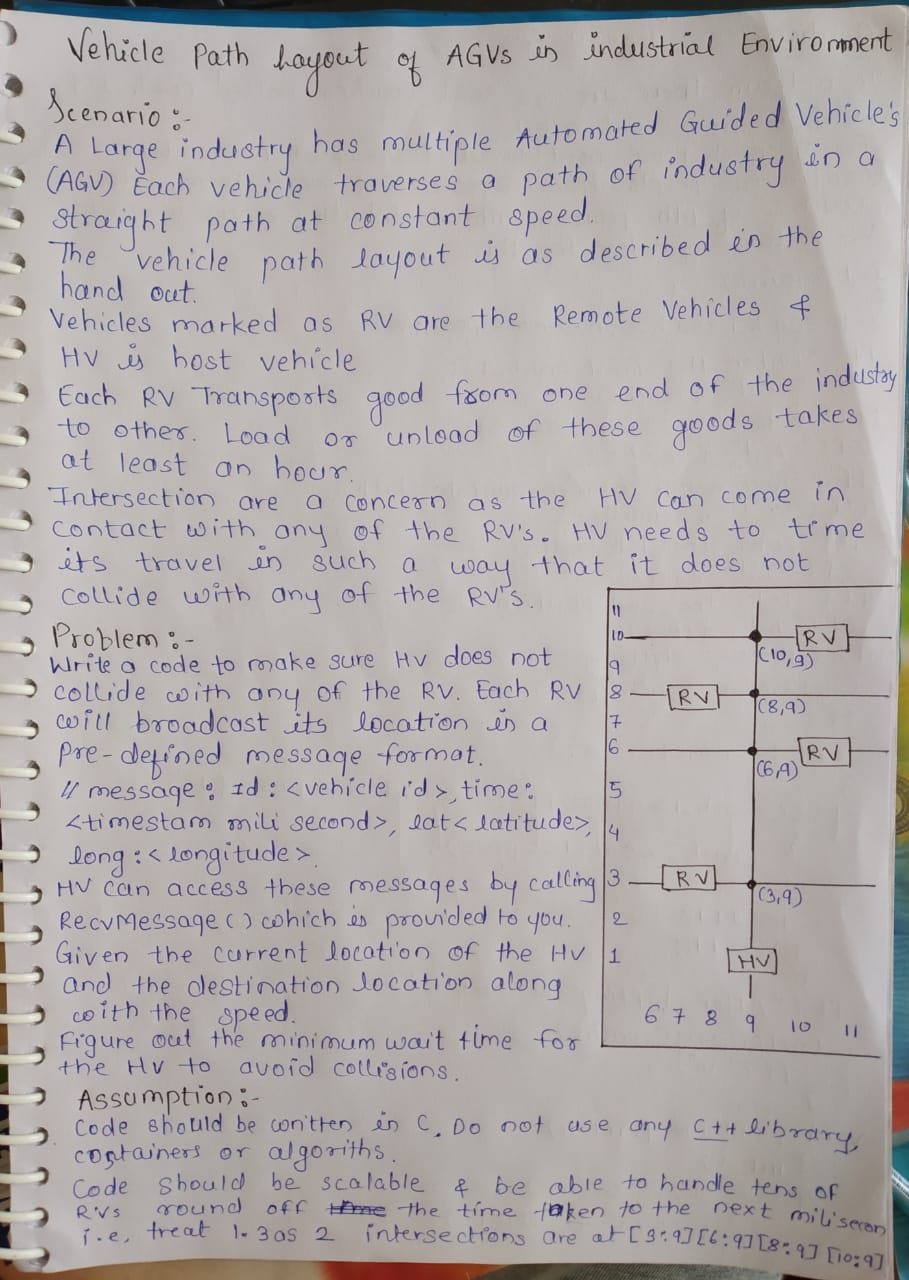 Vehicle Path Layout of AGVs in industrial Environment
Scenario :-
A Large industry has multiple Automated Guided Vehicle's
(AGV) Each vehicle traverses a path of industry in a
straight path at constant speed.
The vehicle path layout is as described in the
hand out.
Vehicles marked as RV are the Remote Vehicles &
HV is host vehicle
Each RV Transports good from one end of the industry
to other. Load or unload of these goods takes
at least an hour.
Intersection are a concern as the HV can come in
contact with any of the RV's. HV needs to time
its travel in such a way that it does not
collide with any of the RV's.
Problem :-
Write a code to make sure HV does not
collide with any of the RV. Each RV
will broadcast its location in a
Pre-defined message format.
// message : Id : <vehicle id>, time :
<timestam mili second>, lat < latitude>,
long : < longitude >
HV can access these messages by calling
RecvMessage () which is provided to you.
Given the current location of the HV
and the destination location along
with the speed.
Figure out the minimum wait time for
the HV to avoid collisions.
11
10 RV
(10,9)
9
8 RV
(8,9)
7
6 RV
(6,9)
5
4
3 RV
(3,9)
2
1 HV
6 7 8 9 10 11
Assumption :-
Code should be written in C, Do not use any C++ library,
containers or algoriths.
Code should be scalable & be able to handle tens of
RVs round off the time taken to the next miliseron
i.e, treat 1.3 as 2 intersections are at [3:9] [6:9] [8:9] [10:9]